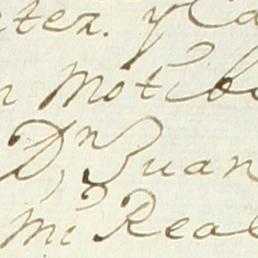 ctez. y Ca
n Motibo
Dn Juan
mi Real